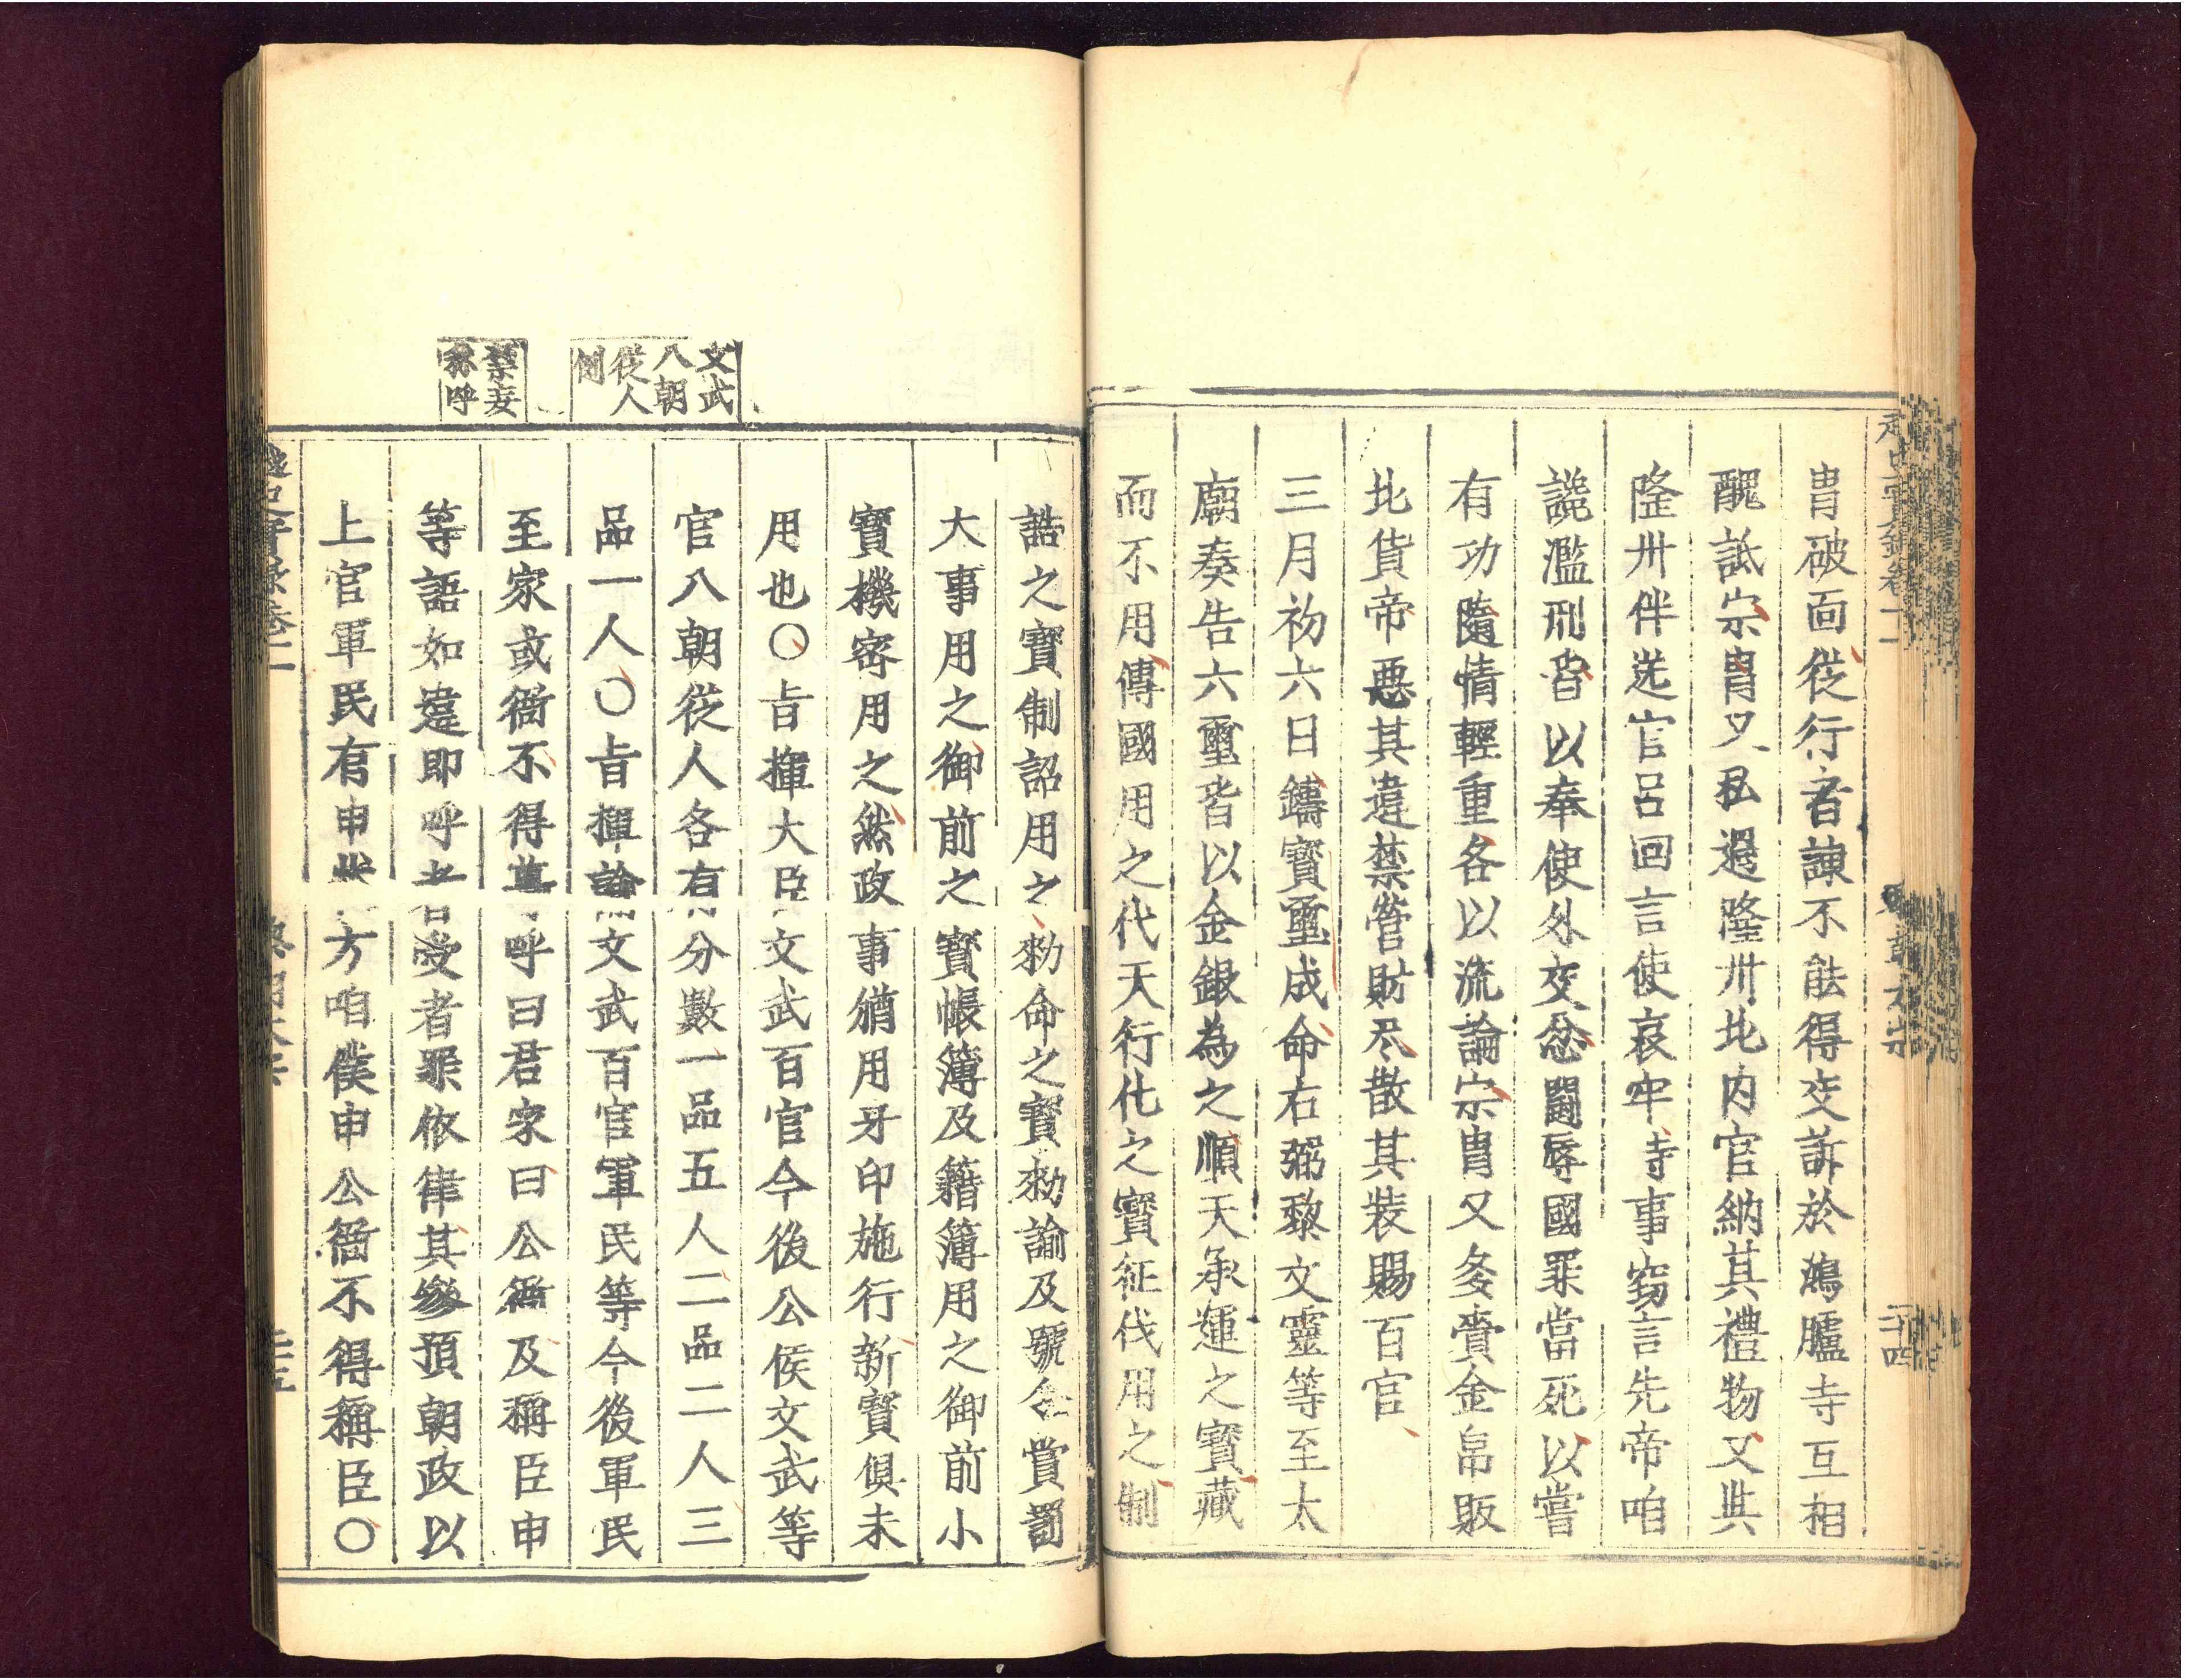 胄破面從行者諌不能得交訴於鴻臚寺互相
醜詆宗胄又私過隆州北內官納其禮物又與
隆州伴送官吕回言使哀牢時事竊言先帝咱
說濫刑皆以奉使外交忿鬪辱國罪當死以嘗
有功隨情輕重各以流論宗胄又多賣金帛販
北貨帝惡其違禁營財尽散其装賜百官
三月初六日鑄寳璽成命右弼黎文靈等至太
廟奏告六璽皆以金銀為之順天承運之寳藏
而不用傳國用之代天行化之寳征伐用之制
誥之寳制詔用之勑命之寳勑諭及號令賞罰
大事用之御前之寳帳簿及籍簿用之御前小
寳機密用之然政事猶用牙印施行新寳俱未
用也〇㫖揮大臣文武百官今後公侯文武等
官入朝從人各有分數一品五人二品二人三
品一人〇㫖揮諭文武百官軍民等今後軍民
至家或衙不得尊呼曰君家曰公衙及稱臣申
等語如違即呼者受者罪依律其參預朝政以
上官軍民有申狀方咱僕申公衙不得稱臣〇
文武
入朝
從人
例
禁妄
稱呼
越史實錄卷十一
黎朝太宗
二十四
越史實錄卷十一
黎朝太宗
二十五